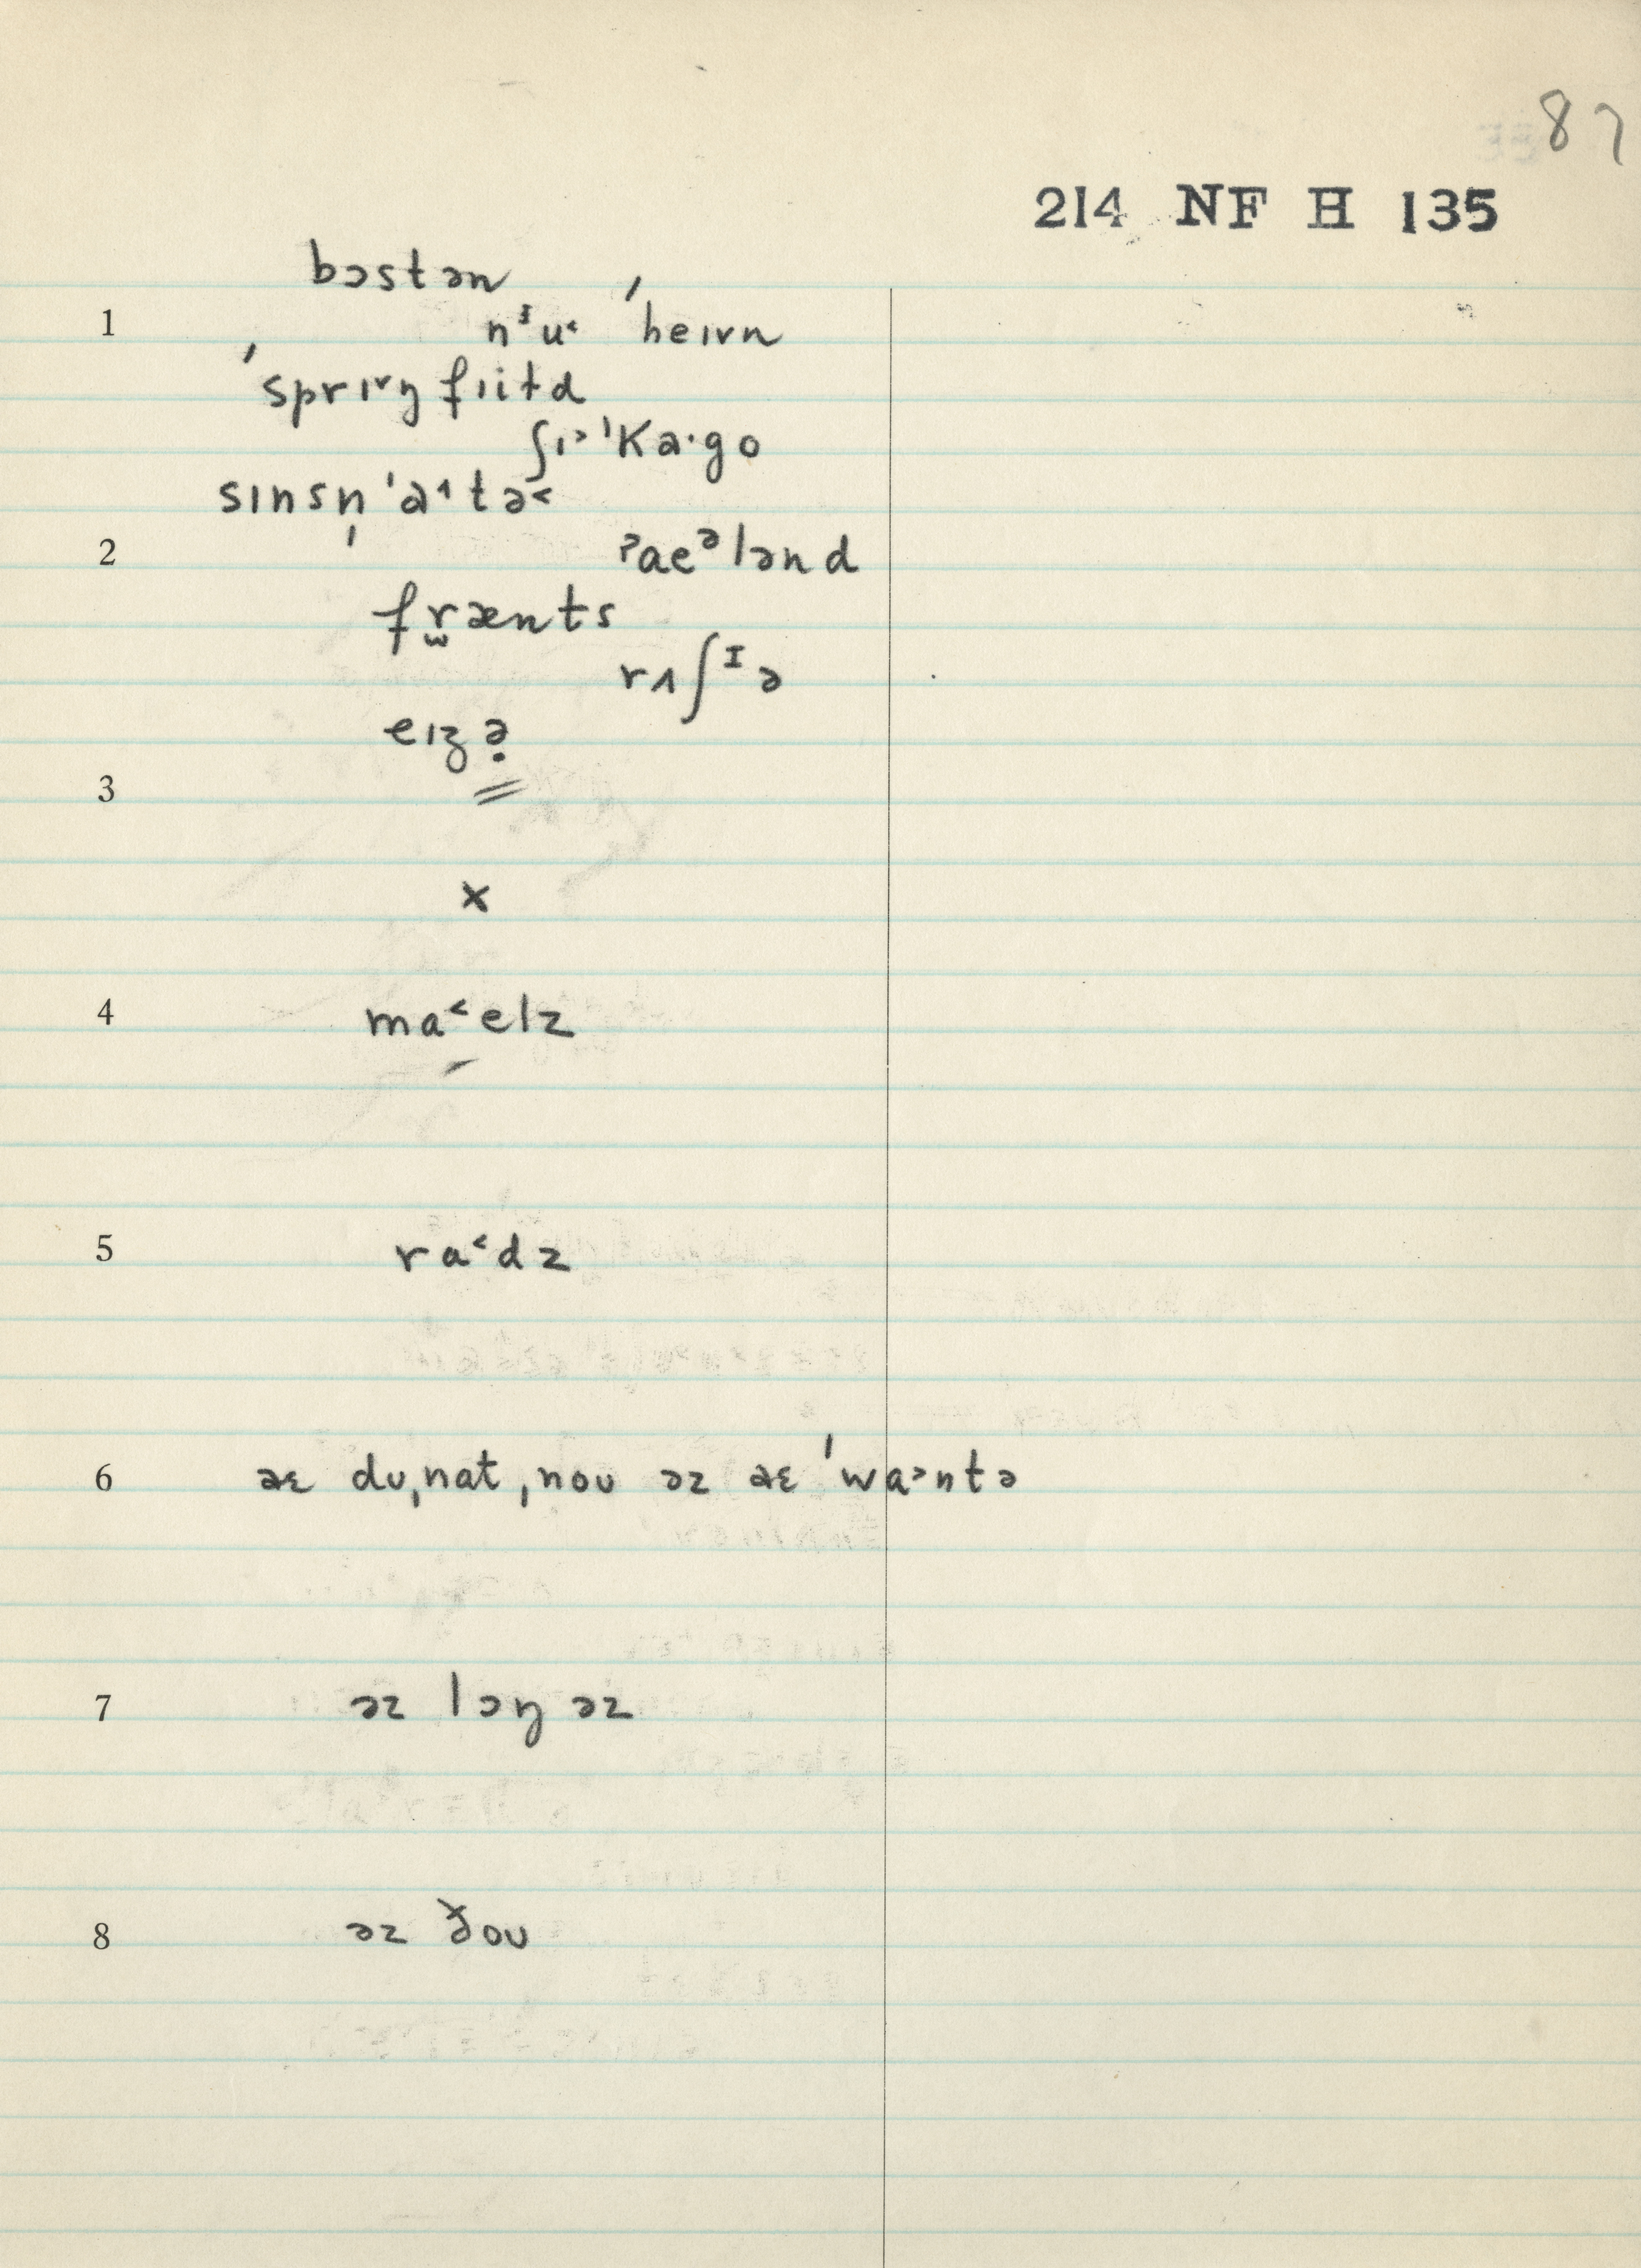 87
214 NF H 135
bɔstən
1 nᶦu˂ ˈheɪvn
ˈsprɪ˅ŋfɪiɫd
ʃɪ˃ˈka·go
sɪnsn̩ˈa˄tə˂
2 ˀaeᵊlənd
fr̫ænts
rʌʃᴵə
eɪʒə̣
3
x
4 ma˂elz
5 ra˂dz
6 aɛ dʊˌnatˌnoʊ əz aɛ ˈwa˃ntə
7 əz lɔŋ əz
8 əz ðoʊ